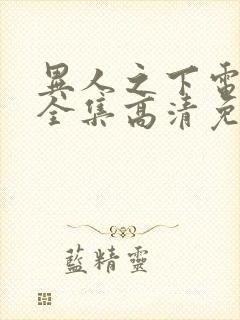 異人之下電
全集高清免
藍精靈